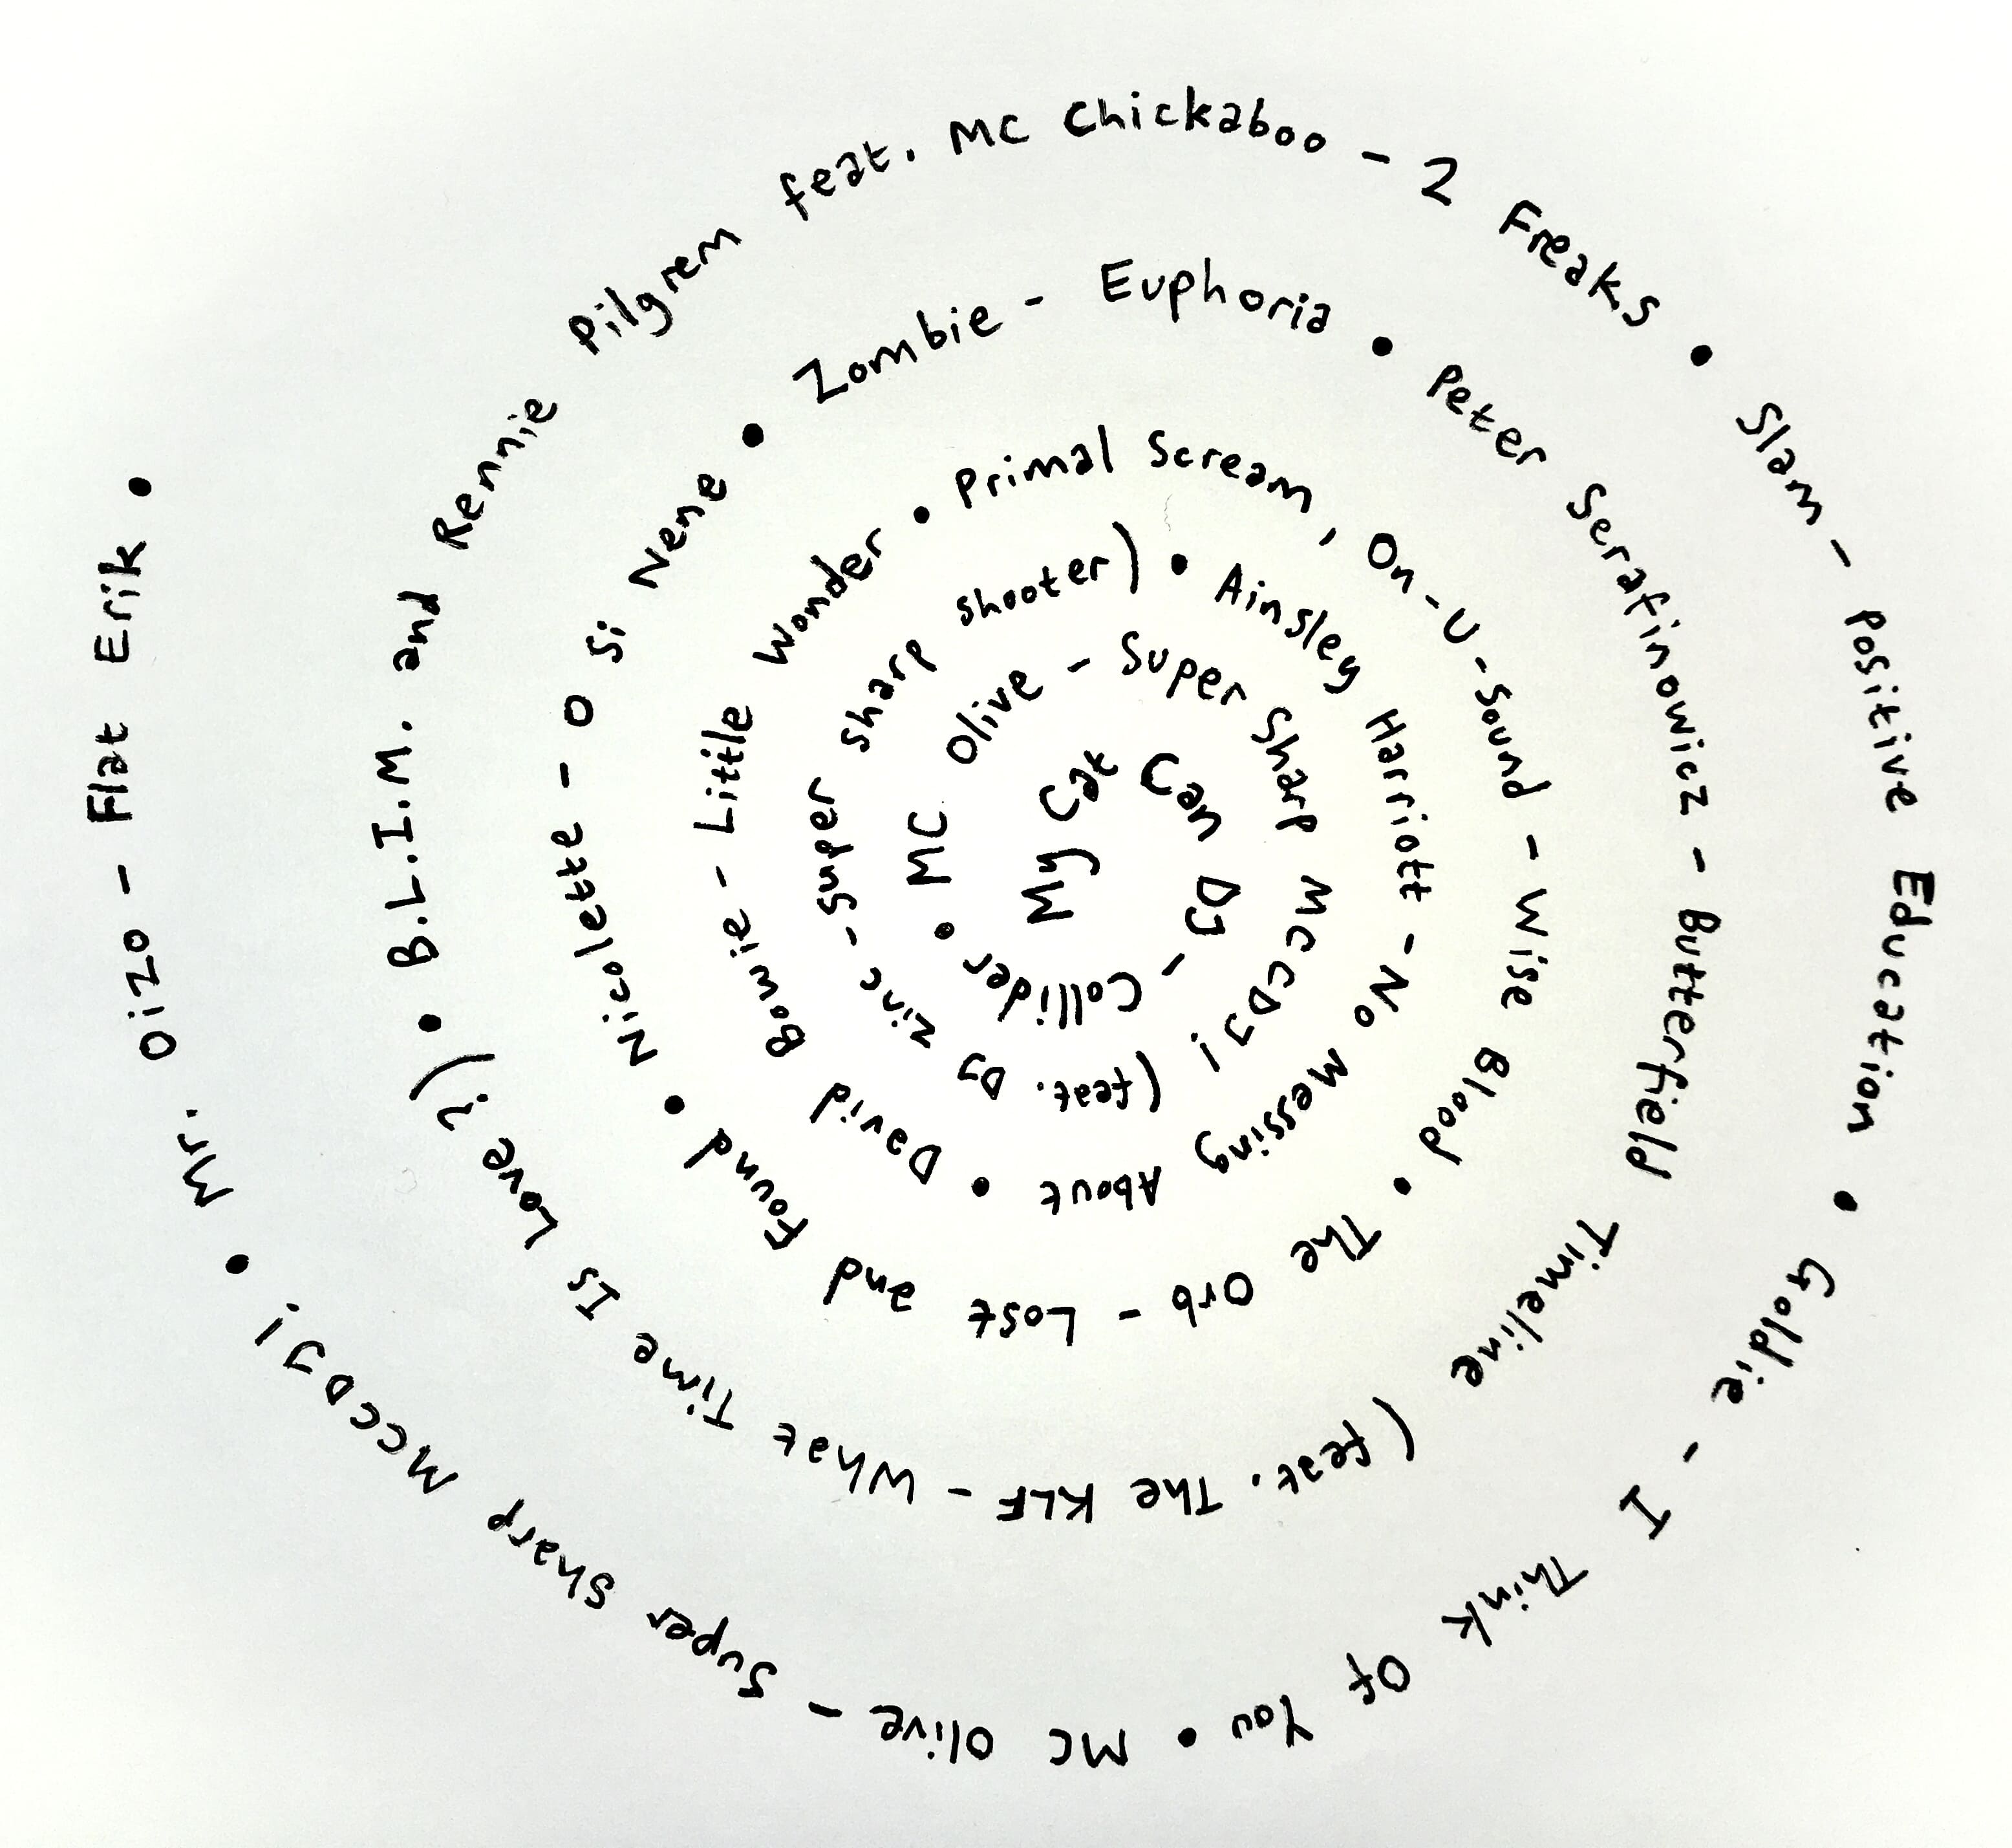 My Cat Can DJ - Collider • MC Olive - Super Sharp MCCDJ! (feat. DJ Zinc - Super Sharp Shooter) • Ainsley Harriott - No Messing About • David Bowie - Little Wonder • Primal Scream, On-U-Sound - Wise Blood • The Orb - Lost and Found • Nicolette - O Si Nene • Zombie - Euphoria • Peter Serafinowicz - Butterfield Timeline (feat. The KLF - What Time Is Love?) • B.L.I.M. and Rennie Pilgrem feat. MC Chickaboo - 2 Freaks • Slam - Positive Education • Goldie - I Think Of You • MC Olive - Super Sharp MCCDJ! • Mr. Oizo - Flat Erik •